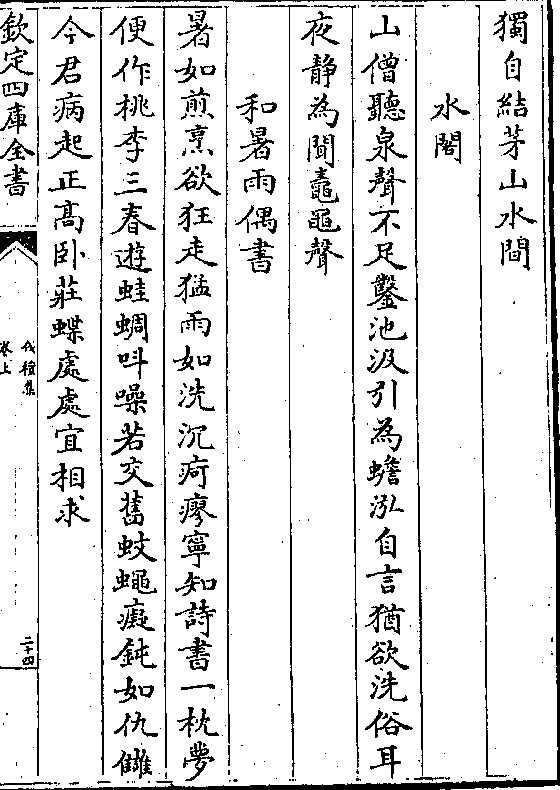 獨自結茅山水間
水閣
山僧聽泉聲不足鑿池汲引為蟾泓自言猶欲洗俗耳
夜静為聞鼃黽聲
和暑雨偶書
暑如煎烹欲狂走猛雨如洗沉疴瘳寜知詩書一枕夢
便作桃李三春遊蛙蜩呌噪若交舊蚊蠅癡鈍如仇讎
今君病起正髙卧莊蝶處處宜相求
欽定四庫全書
伐檀集
卷上
二十四